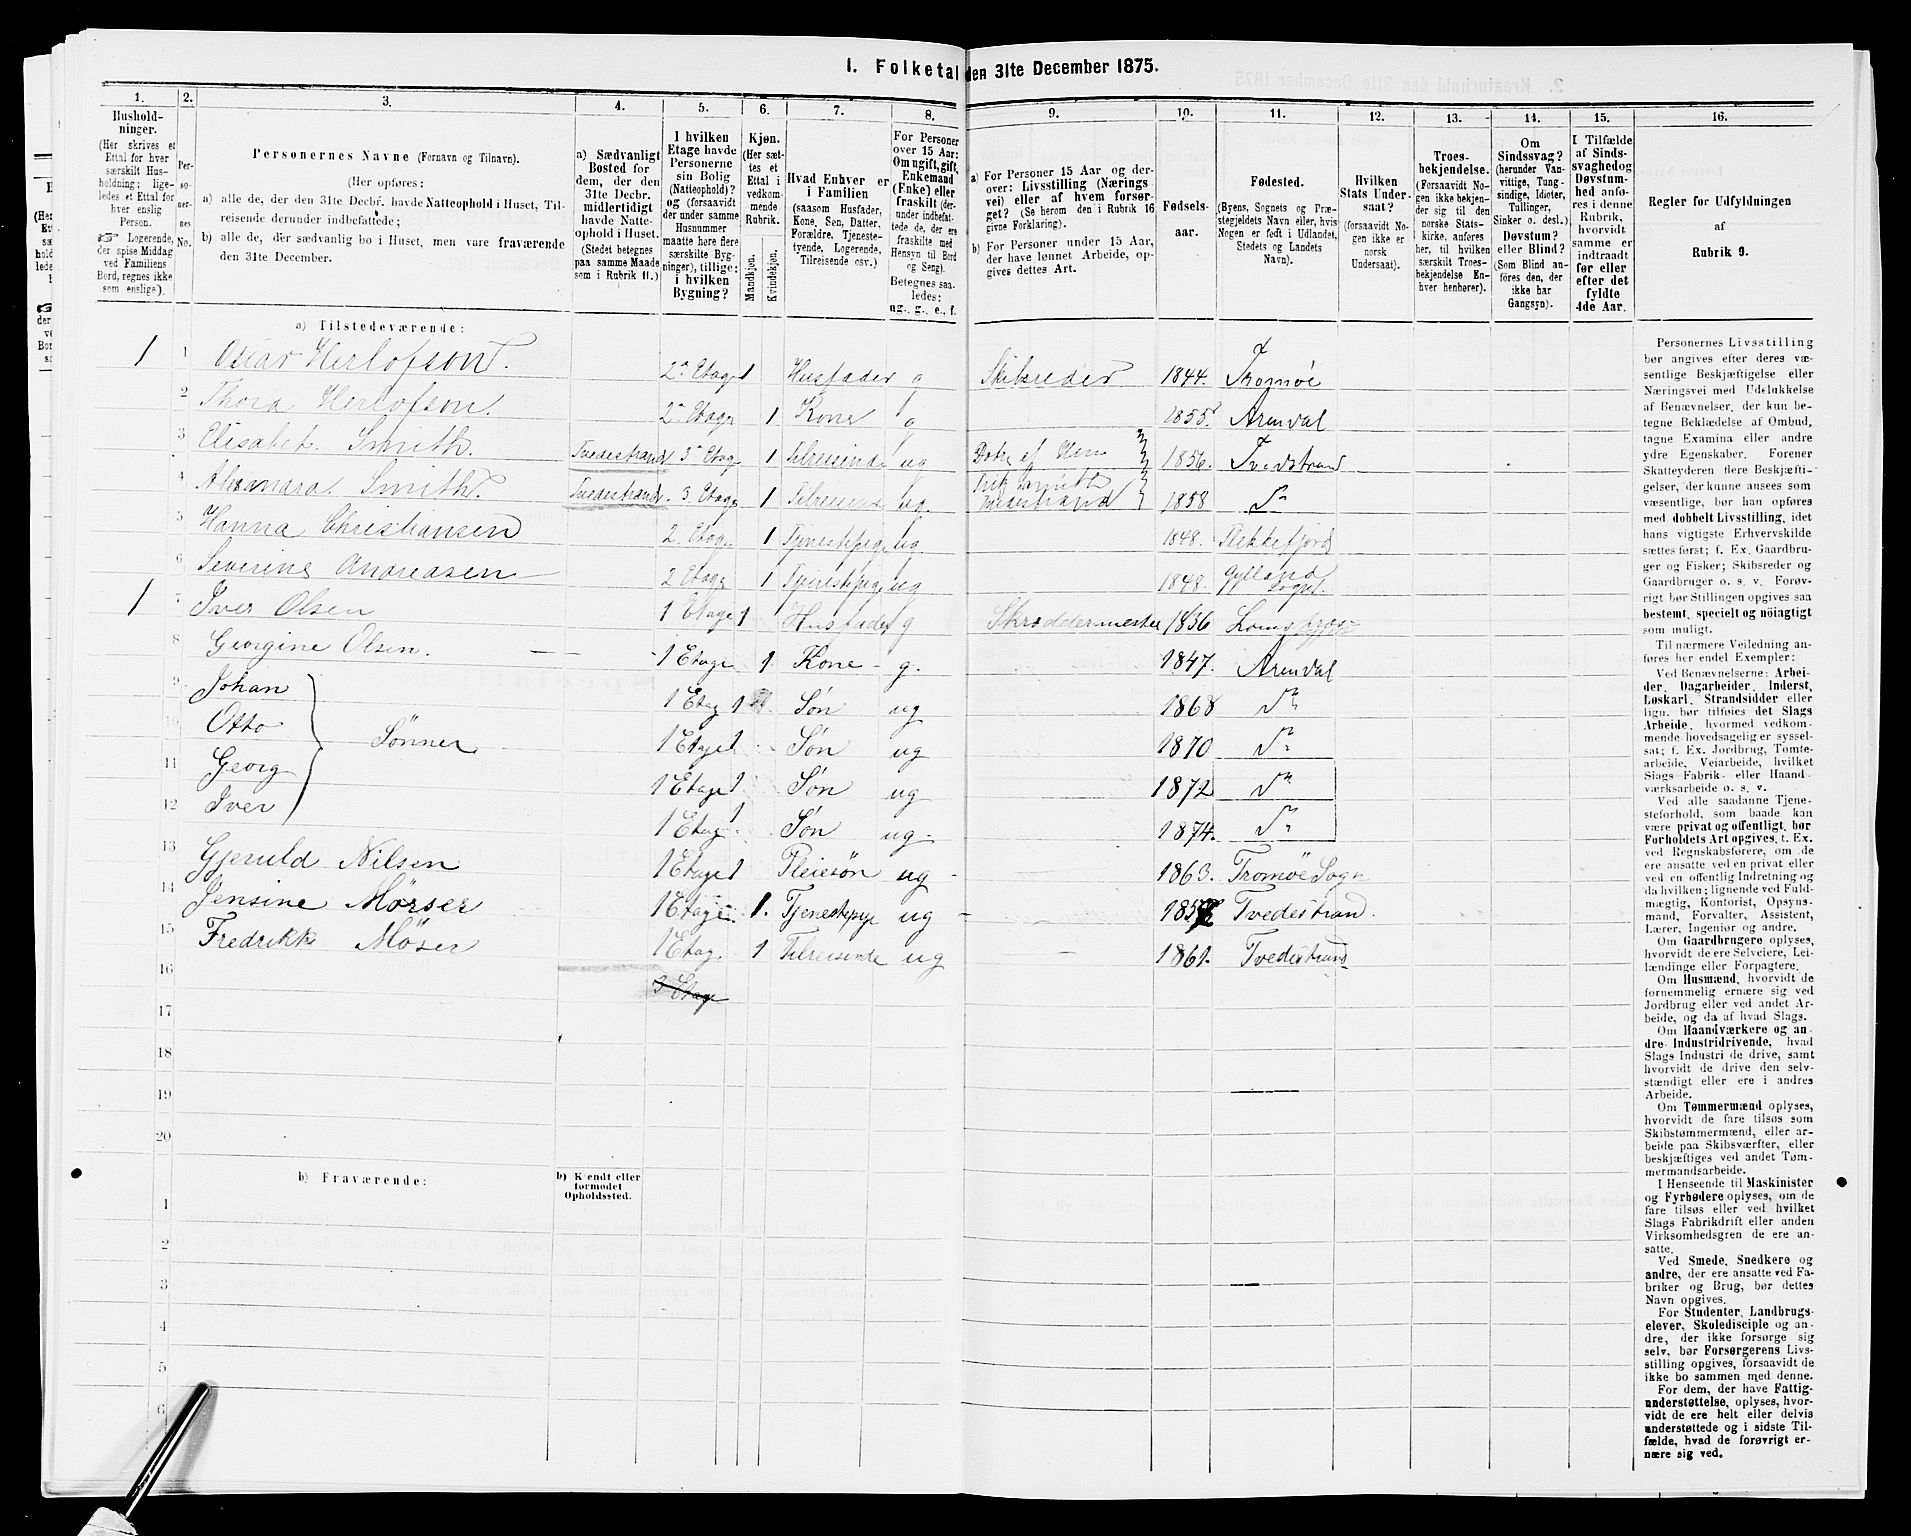 1. Folketal den 31te December 1875.
1. 2. 3. 4. 5. 6. 7. 8. 9. 10. 11. 12. 13. 14. 15. 16.
Husholdninger.
(Her skrives et Ettal for hver særskilt Husholdning; ligeledes et Ettal for hver enslig Person.
☞ Logerende, der spise Middag ved Familiens Bord, regnes ikke som enslige).
Personernes No.
Personernes Navne (Fornavn og Tilnavn).
(Her opføres:
a) alle de, der den 31te Decbr. havde Natteophold i Huset, Tilreisende derunder indbefattede;
b) alle de, der sædvanlig bo i Huset, men vare fraværende den 31te December.
a) Sædvanligt Bosted for dem, der den 31te Decbr. midlertidigt havde Natteophold i Huset.
(Stedet betegnes paa samme Maade som i Rubrik 11.)
I hvilken Etage havde Personerne sin Bolig (Natteophold)? og (forsaavidt der under samme Husnummer maatte høre flere særskilte Bygninger), tillige: i hvilken Bygning?
Kjøn.
(Her sættes et Ettal i vedkommende Rubrik.
Mandkjøn. Kvindekjøn.
Hvad Enhver er i Familien
(saasom Husfader, Kone, Søn, Datter, Forældre, Tjenestetyende, Logerende, Tilreisende osv.)
For Personer over 15 Aar: Om ugift, gift, Enkemand (Enke) eller fraskilt (derunder indbefattede de, der ere fraskilte med Hensyn til Bord og Seng).
Betegnes saaledes: ug., g., e., f.
a) For Personer 15 Aar og derover: Livsstilling (Næringsvei) eller af hvem forsørget? (Se herom den i Rubrik 16 givne Forklaring).
b) For Personer under 15 Aar, der have lønnet Arbeide, opgives dettes Art.
Fødselsaar.
Fødested.
(Byens, Sognets og Præstegjeldets Navn eller, hvis Nogen er født i Udlandet, Stedets og Landets Navn).
Hvilken Stats Undersaat?
(forsaavidt Nogen ikke er norsk Undersaat).
Troesbekjendelse.
(Forsaavidt Nogen ikke bekjender sig til den norske Statskirke, anføres her, til hvilken særskilt Troesbekjendelse Enhver henhører).
Om Sindssvag? (herunder Vanvittige, Tungsindige, Idioter, Tullinger, Sinker o. desl.) Døvstum? eller Blind? (Som Blind anføres den, der ikke har Gangsyn).
I Tilfælde af Sindssvaghed og Døvstumhed anføres i denne Rubrik, hvorvidt samme er indtraadt før eller efter det fyldte 4de Aar.
Regler for Udfyldningen af Rubrik 9.
a) Tilstedeværende:
1 1 Oscar Herlofson. 2n Etage 1 Husfader g Skibsreder 1844. Tromøe
2 Thora Herlofson. 2n Etage 1 Kone g 1855 Arendal
3 Elisabet Smith. Tvedestrand 3n Etage 1 Tilreisende ug Dotre af Herr 1856. Tvedstrand
4 Alexandra Smith. Tvedestrand. 3 Etage 1 Tilreisende ug. Smith Tvedestrand 1858 Do
5 Hanna Christiansen 2 Etage 1 Tjenestepige ug 1848. Flekkefjord
6 Severine Andreasen 2 Etage 1 Tjenestepige ug 1848. Gylland Sogn.
1 7 Iver Olsen 1 Etage 1 Husfader g Skræddermester 1836
8 Georgine Olsen. 1 Etage 1. Kone g. 1847. Arendal
9 Johan 1 Etag 1 Søn ug 1868 Do
10 Otto Sönner 1 Etage 1 Søn ug 1870 Do
11 Georg 1 Etage 1 Søn ug 1872 Do
12 Iver 1 Etag. 1 Søn ug. 1874. Do
13 Gjeruld Nilsen 1 Etage 1 Pleiesøn ug 1863. Tromøe Sogn
14 Jensine Mörser 1 Etage 1. Tjenestepige ug Tvedestrand.
15 Fredrikke Möser 1 Etag. 1 Tilreisende ug 1861. Tvedestrand
16 3 Etage
17
18
19
20
b) Fraværende: b) Kjendt eller formodet Opholdssted.
1
2
3
4
5
6
Personernes Livsstilling bør angives efter deres væsentlige Beskjæftigelse eller Næringsvei med Udelukkelse af Benævnelser, der kun betegne Beklædelse af Ombud, tagne Examina eller andre ydre Egenskaber. Forener Skatteyderen flere Beskjæftigelser, der kunne ansees som væsentlige, bør han opføres med dobbelt Livsstilling, idet hans vigtigste Erhvervskilde sættes først; f. Ex. Gaardbruger og Fisker; Skibsreder og Gaardbruger o. s. v. Forøvrigt bør Stillingen opgives saa bestemt, specielt og nöiagtigt som muligt.
Til nærmere Veiledning anføres her endel Exempler:
Ved Benævnelserne: Arbeider, Dagarbeider, Inderst, Løskarl, Strandsidder eller lign. bør tilføies det Slags Arbeide, hvormed vedkommende hovedsagelig er sysselsat; f. Ex. Jordbrug, Tomtearbeide, Veiarbeide, hvilket Slags Fabrik- eller Haandværksarbeide o. s. v.
Ved alle saadanne Tjenesteforhold, som baade kan være privat og offentligt, bør Forholdets Art opgives, t. Ex. ved Regnskabsførere, om de ere ansatte ved en privat eller ved en offentlig Indretning og da hvilken; lignende ved Fuldmægtig, Kontorist, Opsynsmand, Forvalter, Assistent, Lærer, Ingeniør og andre.
Om Gaardbrugere oplyses, hvorvidt de ere Selveiere, Leilændinge eller Forpagtere.
Om Husmænd, hvorvidt de fornemmelig ernære sig ved Jordbrug eller ved andet Arbeide, og da af hvad Slags.
Om Haandværkere og andre Industridrivende, hvad Slags Industri de drive, samt hvorvidt de drive den selvstændigt eller ere i andres Arbeide.
Om Tømmermænd oplyses, hvorvidt de fare tilsøs som Skibstømmermænd, eller arbeide paa Skibsværfter, eller beskjæftiges ved andet Tømmermandsarbeide.
I Henseende til Maskinister og Fyrbødere oplyses, om de fare tilsøs eller ved hvilket Slags Fabrikdrift eller anden Virksomhedsgren de ere ansatte.
Ved Smede, Snedkere og andre, der ere ansatte ved Fabriker og Brug, bør dettes Navn opgives.
For Studenter, Landbrugselever, Skoledisciple og andre, der ikke forsørge sig selv, bør Forsørgerens Livsstilling opgives, forsaavidt de ikke bo sammen med denne.
For dem, der have Fattigunderstøttelse, oplyses, hvorvidt de ere helt eller delvis understøttede og i sidste Tilfælde, hvad de forøvrigt ernære sig ved.